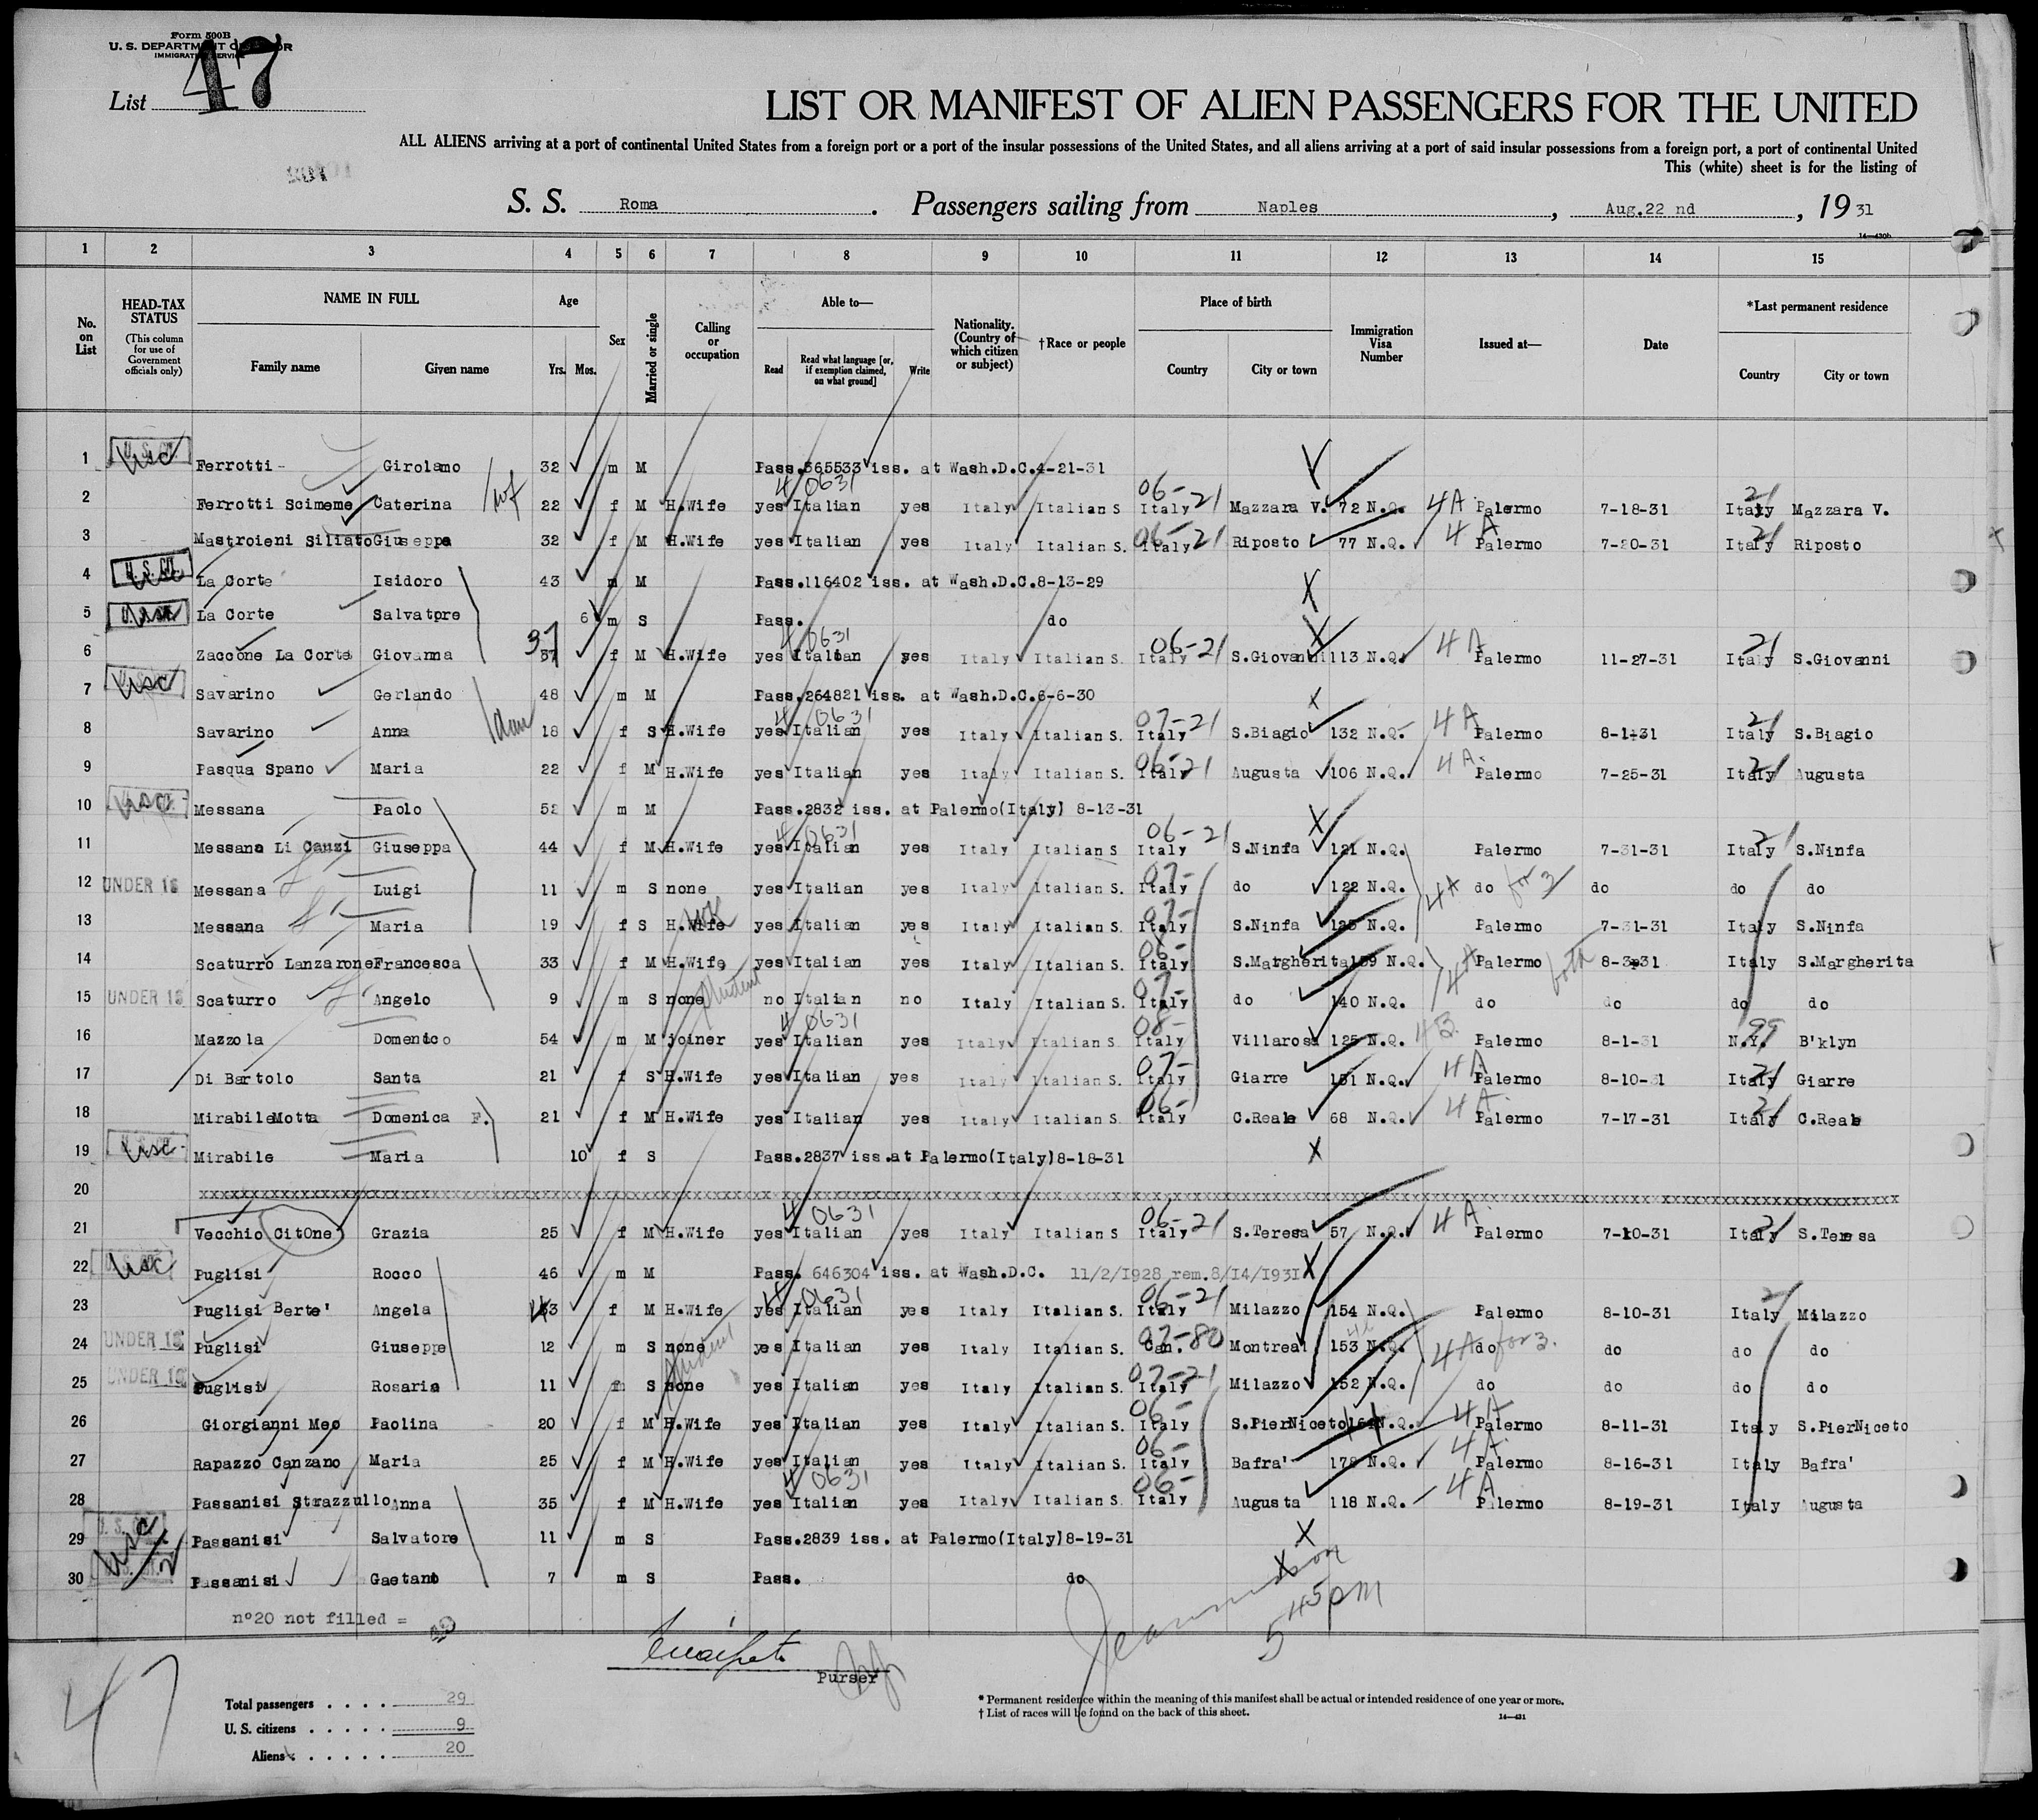 Form 500B
U. S. DEPARTMENT OF LABOR
IMMIGRATION SERVICE
List 47
LIST OR MANIFEST OF ALIEN PASSENGERS FOR THE UNITED
ALL ALIENS arriving at a port of continental United States from a foreign port or a port of the insular possessions of the United States, and all aliens arriving at a port of said insular possessions from a foreign port, a port of continental United
This (white) sheet is for the listing of
S. S. Roma. Passengers sailing from Naples, Aug.22 nd, 1931
14—430b
1 2 3 4 5 6 7 8 9 10 11 12 13 14 15
No. on List
HEAD-TAX STATUS (This column for use of Government officials only)
NAME IN FULL
Family name Given name
Age
Yrs. Mos.
Sex
Married or single
Calling or occupation
Able to—
Read Read what language [or, if exemption claimed, on what ground] Write
Nationality. (Country of which citizen or subject)
†Race or people
Place of birth
Country City or town
Immigration Visa Number
Issued at—
Date
*Last permanent residence
Country City or town
1 usc Ferrotti Girolamo 32 m M Pass.565533 iss. at Wash.D.C.4-21-31
2 Ferrotti Scimeme Caterina wf 22 f M H.Wife yes Italian 40631 yes Italy Italian S Italy 06-21 Mazzara V. 72 N.Q. 4A Palermo 7-18-31 Italy 21 Mazzara V.
3 Mastroieni Siliato Giuseppa 32 f M H.Wife yes Italian yes Italy Italian S. Italy 06-21 Riposto 77 N.Q. 4A Palermo 7-20-31 Italy 21 Riposto
4 U.S.CIT. La Corte Isidoro 43 m M Pass.116402 iss. at Wash.D.C.8-13-29
5 usc La Corte Salvatore 6 m S Pass. do
6 Zaccone La Corte Giovanna 37 f M H.Wife yes Italian 40631 yes Italy Italian S. Italy 06-21 S.Giovanni 113 N.Q. 4A Palermo 11-27-31 Italy 21 S.Giovanni
7 usc Savarino Gerlando 48 m M Pass.264821 iss. at Wash.D.C.6-6-30
8 Savarino Anna dau 18 f S H.Wife yes Italian 40631 yes Italy Italian S. Italy 07-21 S.Biagio 132 N.Q. 4A Palermo 8-1-31 Italy 21 S.Biagio
9 Pasqua Spano Maria 22 f M H.Wife yes Italian yes Italy Italian S. Italy 06-21 Augusta 106 N.Q. 4A Palermo 7-25-31 Italy 21 Augusta
10 usc Messana Paolo 52 m M Pass.2832 iss. at Palermo(Italy) 8-13-31
11 Messana Li Causi Giuseppa 44 f M H.Wife yes Italian 40631 yes Italy Italian S Italy 06-21 S.Ninfa 121 N.Q. Palermo 7-31-31 Italy 21 S.Ninfa
12 UNDER 16 Messana Luigi 11 m S none yes Italian yes Italy Italian S. Italy 07- do 122 N.Q. 4A do for 3 do do do
13 Messana Maria 19 f S H.Wife yes Italian yes Italy Italian S. Italy 07- S.Ninfa 123 N.Q. Palermo 7-31-31 Italy S.Ninfa
14 Scaturro Lanzarone Francesca 33 f M H.Wife yes Italian yes Italy Italian S. Italy 06- S.Margherita 139 N.Q. 4A Palermo both 8-3-31 Italy S.Margherita
15 UNDER 16 Scaturro Angelo 9 m S none student no Italian no Italy Italian S. Italy 07- do 140 N.Q. do do do do
16 Mazzola Domenico 54 m M joiner yes Italian 40631 yes Italy Italian S Italy 08- Villarosa 125 N.Q. 4B Palermo 8-1-31 N.Y. 99 B'klyn
17 Di Bartolo Santa 21 f S H.Wife yes Italian yes Italy Italian S. Italy 07- Giarre 151 N.Q. 4A Palermo 8-10-31 Italy 21 Giarre
18 Mirabile Motta Domenica F. 21 f M H.Wife yes Italian yes Italy Italian S. Italy 06- C.Reale 68 N.Q. 4A Palermo 7-17-31 Italy 21 C.Reale
19 usc Mirabile Maria 10 f S Pass.2837 iss.at Palermo(Italy)8-18-31
20 xxxxxxxxxxxxxxxxxxxxxxxxxxxxxxxxxxxxxxxxxxxxxxxxxxxxxxxxxxxx
21 Vecchio CitOne Grazia 25 f M H.Wife yes Italian 40631 yes Italy Italian S Italy 06-21 S.Teresa 57 N.Q. 4A Palermo 7-10-31 Italy 21 S.Teresa
22 usc Puglisi Rocco 46 m M Pass. 646304 iss. at Wash.D.C. 11/2/1928 rem.8/14/1931
23 Puglisi Berte' Angela 43 f M H.Wife yes Italian 40631 yes Italy Italian S. Italy 06-21 Milazzo 154 N.Q. Palermo 8-10-31 Italy 21 Milazzo
24 UNDER 16 Puglisi Giuseppe 12 m S none student yes Italian yes Italy Italian S. Can. 07-80 Montreal 153 N.Q. 4A do for 3. do do do
25 UNDER 16 Puglisi Rosaria 11 f S none yes Italian yes Italy Italian S. Italy 07-21 Milazzo 152 N.Q. do do do do
26 Giorgianni Meo Paolina 20 f M H.Wife yes Italian yes Italy Italian S. Italy 06- S.PierNiceto 164 N.Q. 4A Palermo 8-11-31 Italy S.PierNiceto
27 Rapazzo Canzano Maria 25 f M H.Wife yes Italian yes Italy Italian S. Italy 06- Bafra' 178 N.Q. 4A Palermo 8-16-31 Italy Bafra'
28 Passanisi Strazzullo Anna 35 f M H.Wife yes Italian 40631 yes Italy Italian S. Italy 06- Augusta 118 N.Q. 4A Palermo 8-19-31 Italy Augusta
29 usc Passanisi Salvatore 11 m S Pass.2839 iss. at Palermo(Italy)8-19-31
30 Passanisi Gaetano 7 m S Pass. do
n°20 not filled =
5 45 PM
Purser
47
Total passengers . . . . 29
U. S. citizens . . . . . 9
Aliens . . . . . . 20
* Permanent residence within the meaning of this manifest shall be actual or intended residence of one year or more.
† List of races will be found on the back of this sheet.
14—431